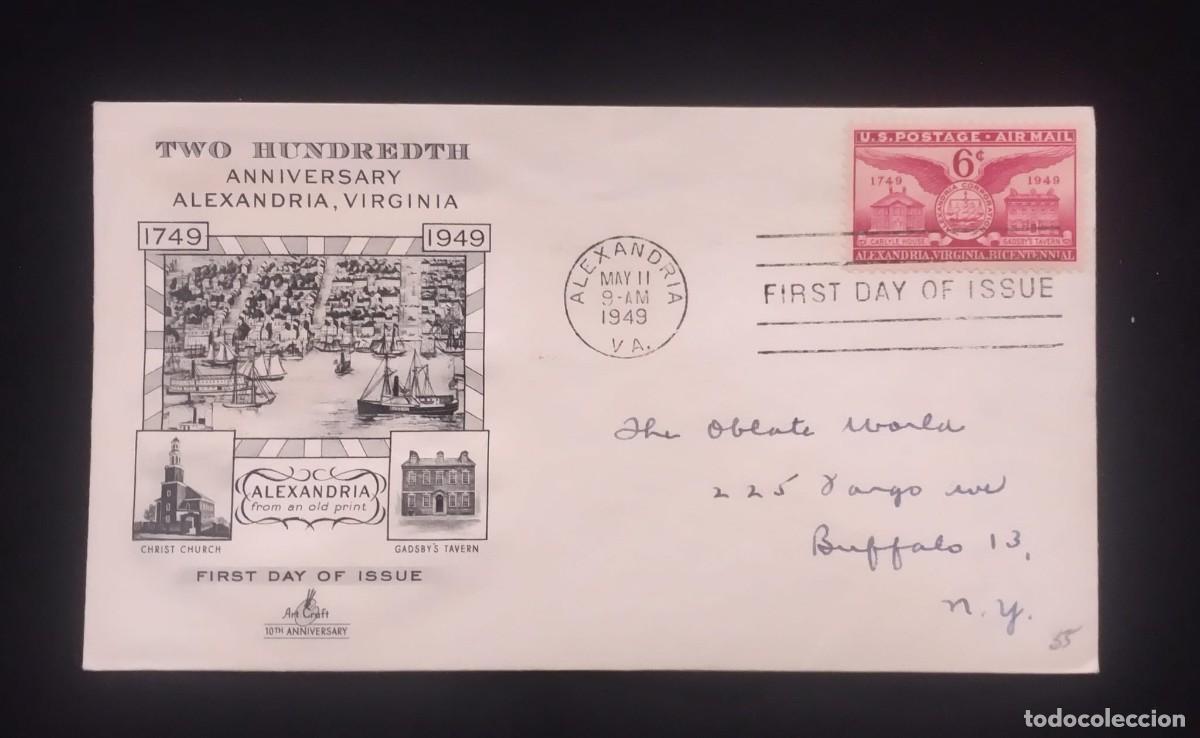 TWO HUNDREDTH
ANNIVERSARY
ALEXANDRIA, VIRGINIA
1749 1949
ALEXANDRIA
from an old print
CHRIST CHURCH
GADSBY'S TAVERN
FIRST DAY OF ISSUE
Art Craft
10TH ANNIVERSARY
ALEXANDRIA
MAY 11
9-AM
1949
VA.
U.S. POSTAGE · AIR MAIL
6¢
1749 1949
ALEXANDRIA CORPORATION
CARLYLE HOUSE GADSBY'S TAVERN
ALEXANDRIA, VIRGINIA, BICENTENNIAL
FIRST DAY OF ISSUE
The Oblate World
225 Vargo Ave
Buffalo 13,
N.Y.
55
todocoleccion